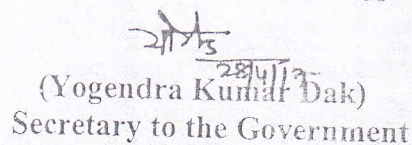 28/4/13
(Yogendra Kumar Dak)
Secretary to the Government